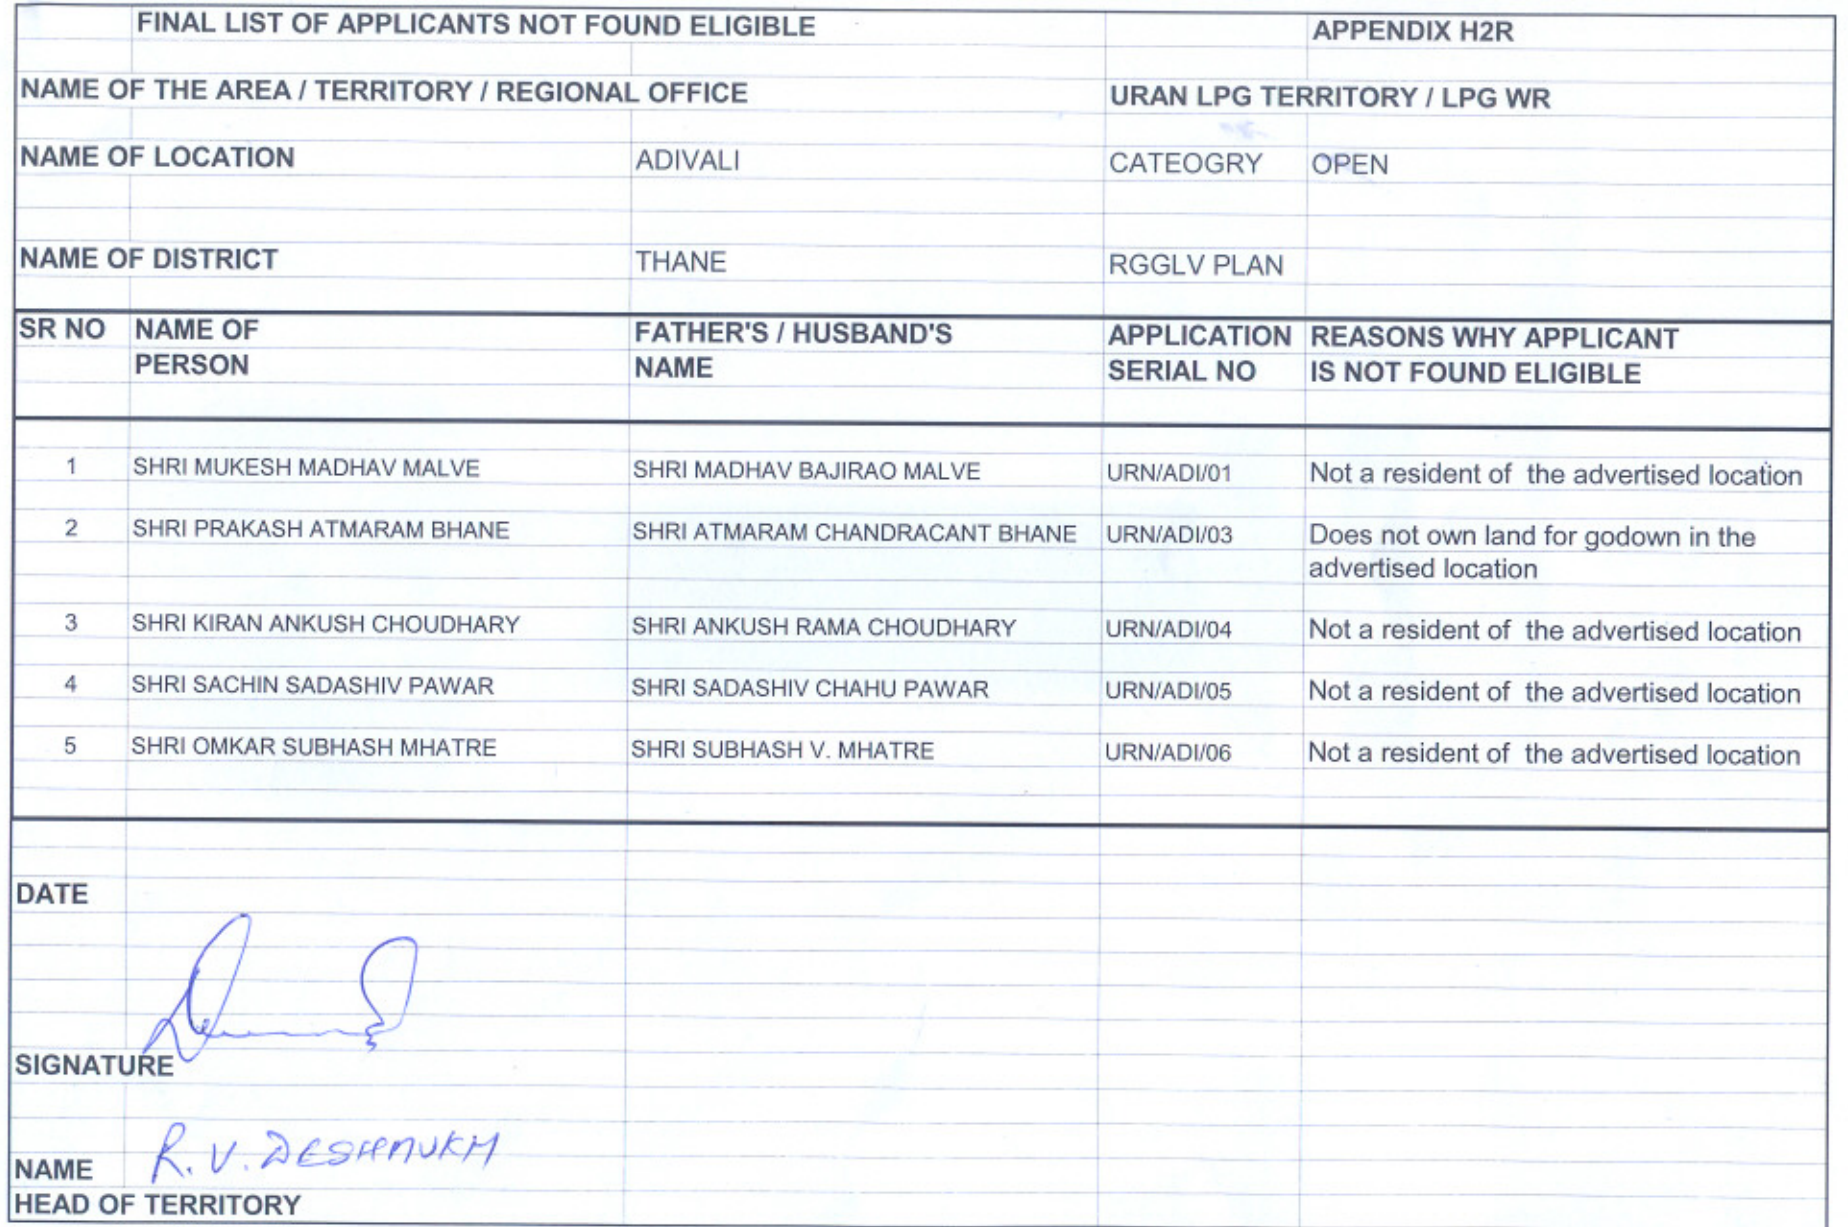 FINAL LIST OF APPLICANTS NOT FOUND ELIGIBLE APPENDIX H2R
NAME OF THE AREA / TERRITORY / REGIONAL OFFICE URAN LPG TERRITORY / LPG WR
NAME OF LOCATION ADIVALI CATEOGRY OPEN
NAME OF DISTRICT THANE RGGLV PLAN
SR NO NAME OF FATHER'S / HUSBAND'S APPLICATION REASONS WHY APPLICANT
PERSON NAME SERIAL NO IS NOT FOUND ELIGIBLE
1 SHRI MUKESH MADHAV MALVE SHRI MADHAV BAJIRAO MALVE URN/ADI/01 Not a resident of the advertised location
2 SHRI PRAKASH ATMARAM BHANE SHRI ATMARAM CHANDRACANT BHANE URN/ADI/03 Does not own land for godown in the
advertised location
3 SHRI KIRAN ANKUSH CHOUDHARY SHRI ANKUSH RAMA CHOUDHARY URN/ADI/04 Not a resident of the advertised location
4 SHRI SACHIN SADASHIV PAWAR SHRI SADASHIV CHAHU PAWAR URN/ADI/05 Not a resident of the advertised location
5 SHRI OMKAR SUBHASH MHATRE SHRI SUBHASH V. MHATRE URN/ADI/06 Not a resident of the advertised location
DATE
SIGNATURE
NAME R. V. DESHMUKH
HEAD OF TERRITORY